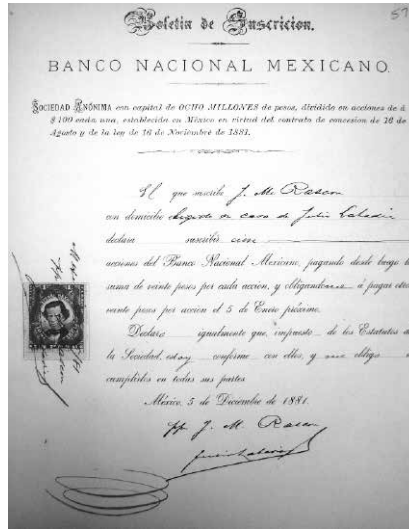 57
Boletin de Suscricion.
BANCO NACIONAL MEXICANO.
SOCIEDAD ANÓNIMA con capital de OCHO MILLONES de pesos, dividido en acciones de á
$100 cada una, establecida en México en virtud del contrato de concesion de 16 de
Agosto y de la ley de 16 de Noviembre de 1881.
El que suscribe J. M. Rascon
con domicilio en casa de Julio
declara suscribir cien
acciones del Banco Nacional Mexicano, pagando desde luego la
suma de veinte pesos por cada accion, y obligandome á pagar otros
veinte pesos por accion el 5 de Enero próximo.
Declaro igualmente que, impuesto de los Estatutos de
la Sociedad, estoy conforme con ellos, y me obligo a
cumplirlos en todas sus partes
México, 5 de Diciembre de 1881.
pp J. M. Rascon